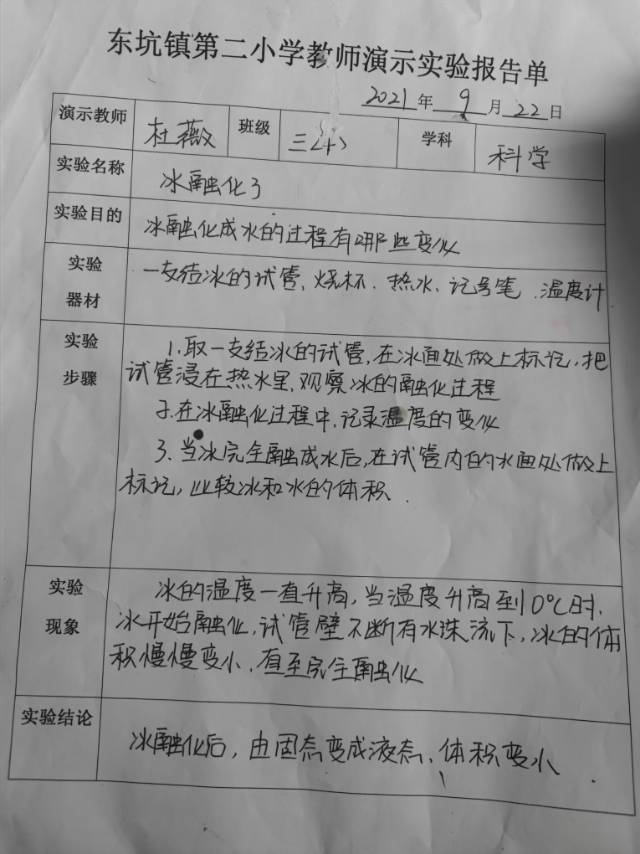 东坑镇第二小学教师演示实验报告单
2021年9月22日
演示教师 杜薇 班级 三(4) 学科 科学
实验名称 冰融化了
实验目的 冰融化成水的过程有哪些变化
实验器材 一支结冰的试管、烧杯、热水、记号笔、温度计
实验步骤 1.取一支结冰的试管,在冰面处做上标记,把
试管浸在热水里,观察冰的融化过程
2.在冰融化过程中,记录温度的变化
3、当冰完全融成水后,在试管内的水面处做上
标记,比较冰和水的体积.
实验现象 冰的温度一直升高,当温度升高到0℃时,
冰开始融化,试管壁不断有水珠流下,冰的体
积慢慢变小,直至完全融化
实验结论 冰融化后,由固态变成液态、体积变小